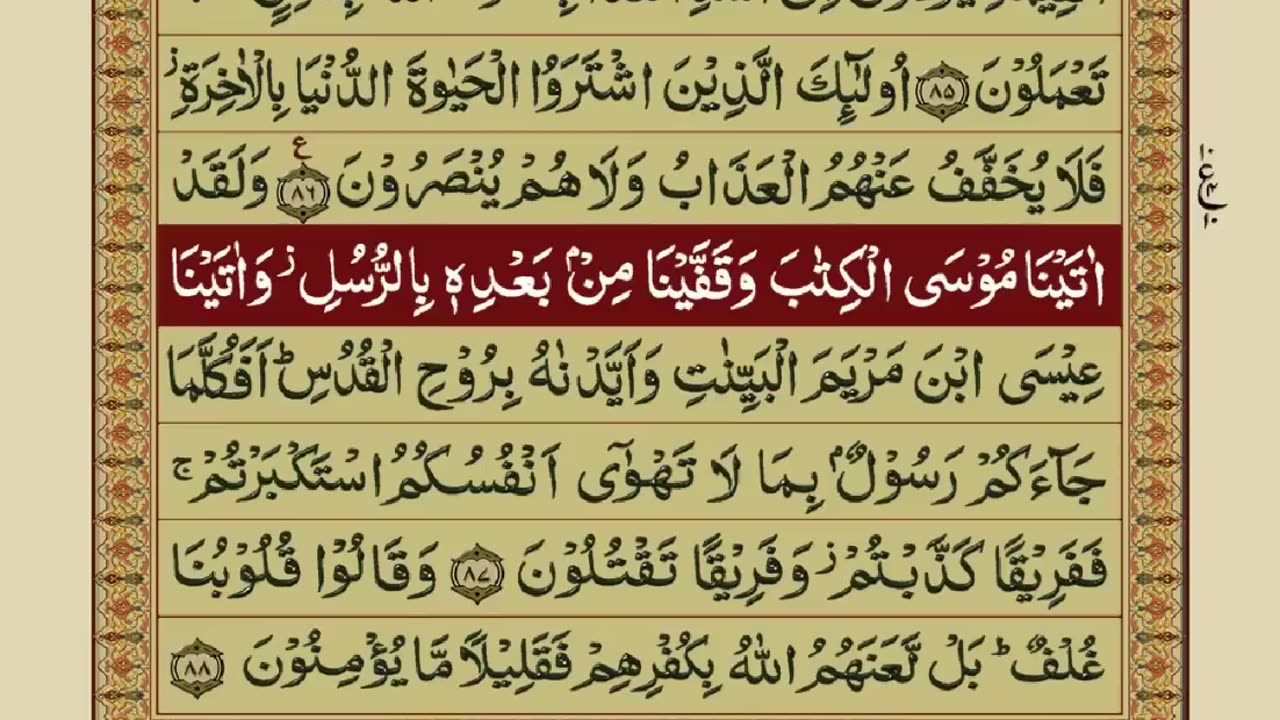 تَعْمَلُوْنَ ﴿۸۵﴾ اُولٰٓئِكَ الَّذِيْنَ اشْتَرَوُا الْحَيٰوةَ الدُّنْيَا بِالْاٰخِرَةِ ز
فَلَا يُخَفَّفُ عَنْهُمُ الْعَذَابُ وَلَا هُمْ يُنْصَرُوْنَ ﴿۸۶﴾ ع وَلَقَدْ
اٰتَيْنَا مُوْسَى الْكِتٰبَ وَقَفَّيْنَا مِنْۢ بَعْدِهٖ بِالرُّسُلِ ز وَاٰتَيْنَا
عِيْسَى ابْنَ مَرْيَمَ الْبَيِّنٰتِ وَاَيَّدْنٰهُ بِرُوْحِ الْقُدُسِ ؕ اَفَكُلَّمَا
جَآءَكُمْ رَسُوْلٌۢ بِمَا لَا تَهْوٰٓى اَنْفُسُكُمُ اسْتَكْبَرْتُمْ ۚ
فَفَرِيْقًا كَذَّبْتُمْ ز وَفَرِيْقًا تَقْتُلُوْنَ ﴿۸۷﴾ وَقَالُوْا قُلُوْبُنَا
غُلْفٌ ؕ بَلْ لَّعَنَهُمُ اللّٰهُ بِكُفْرِهِمْ فَقَلِيْلًا مَّا يُؤْمِنُوْنَ ﴿۸۸﴾